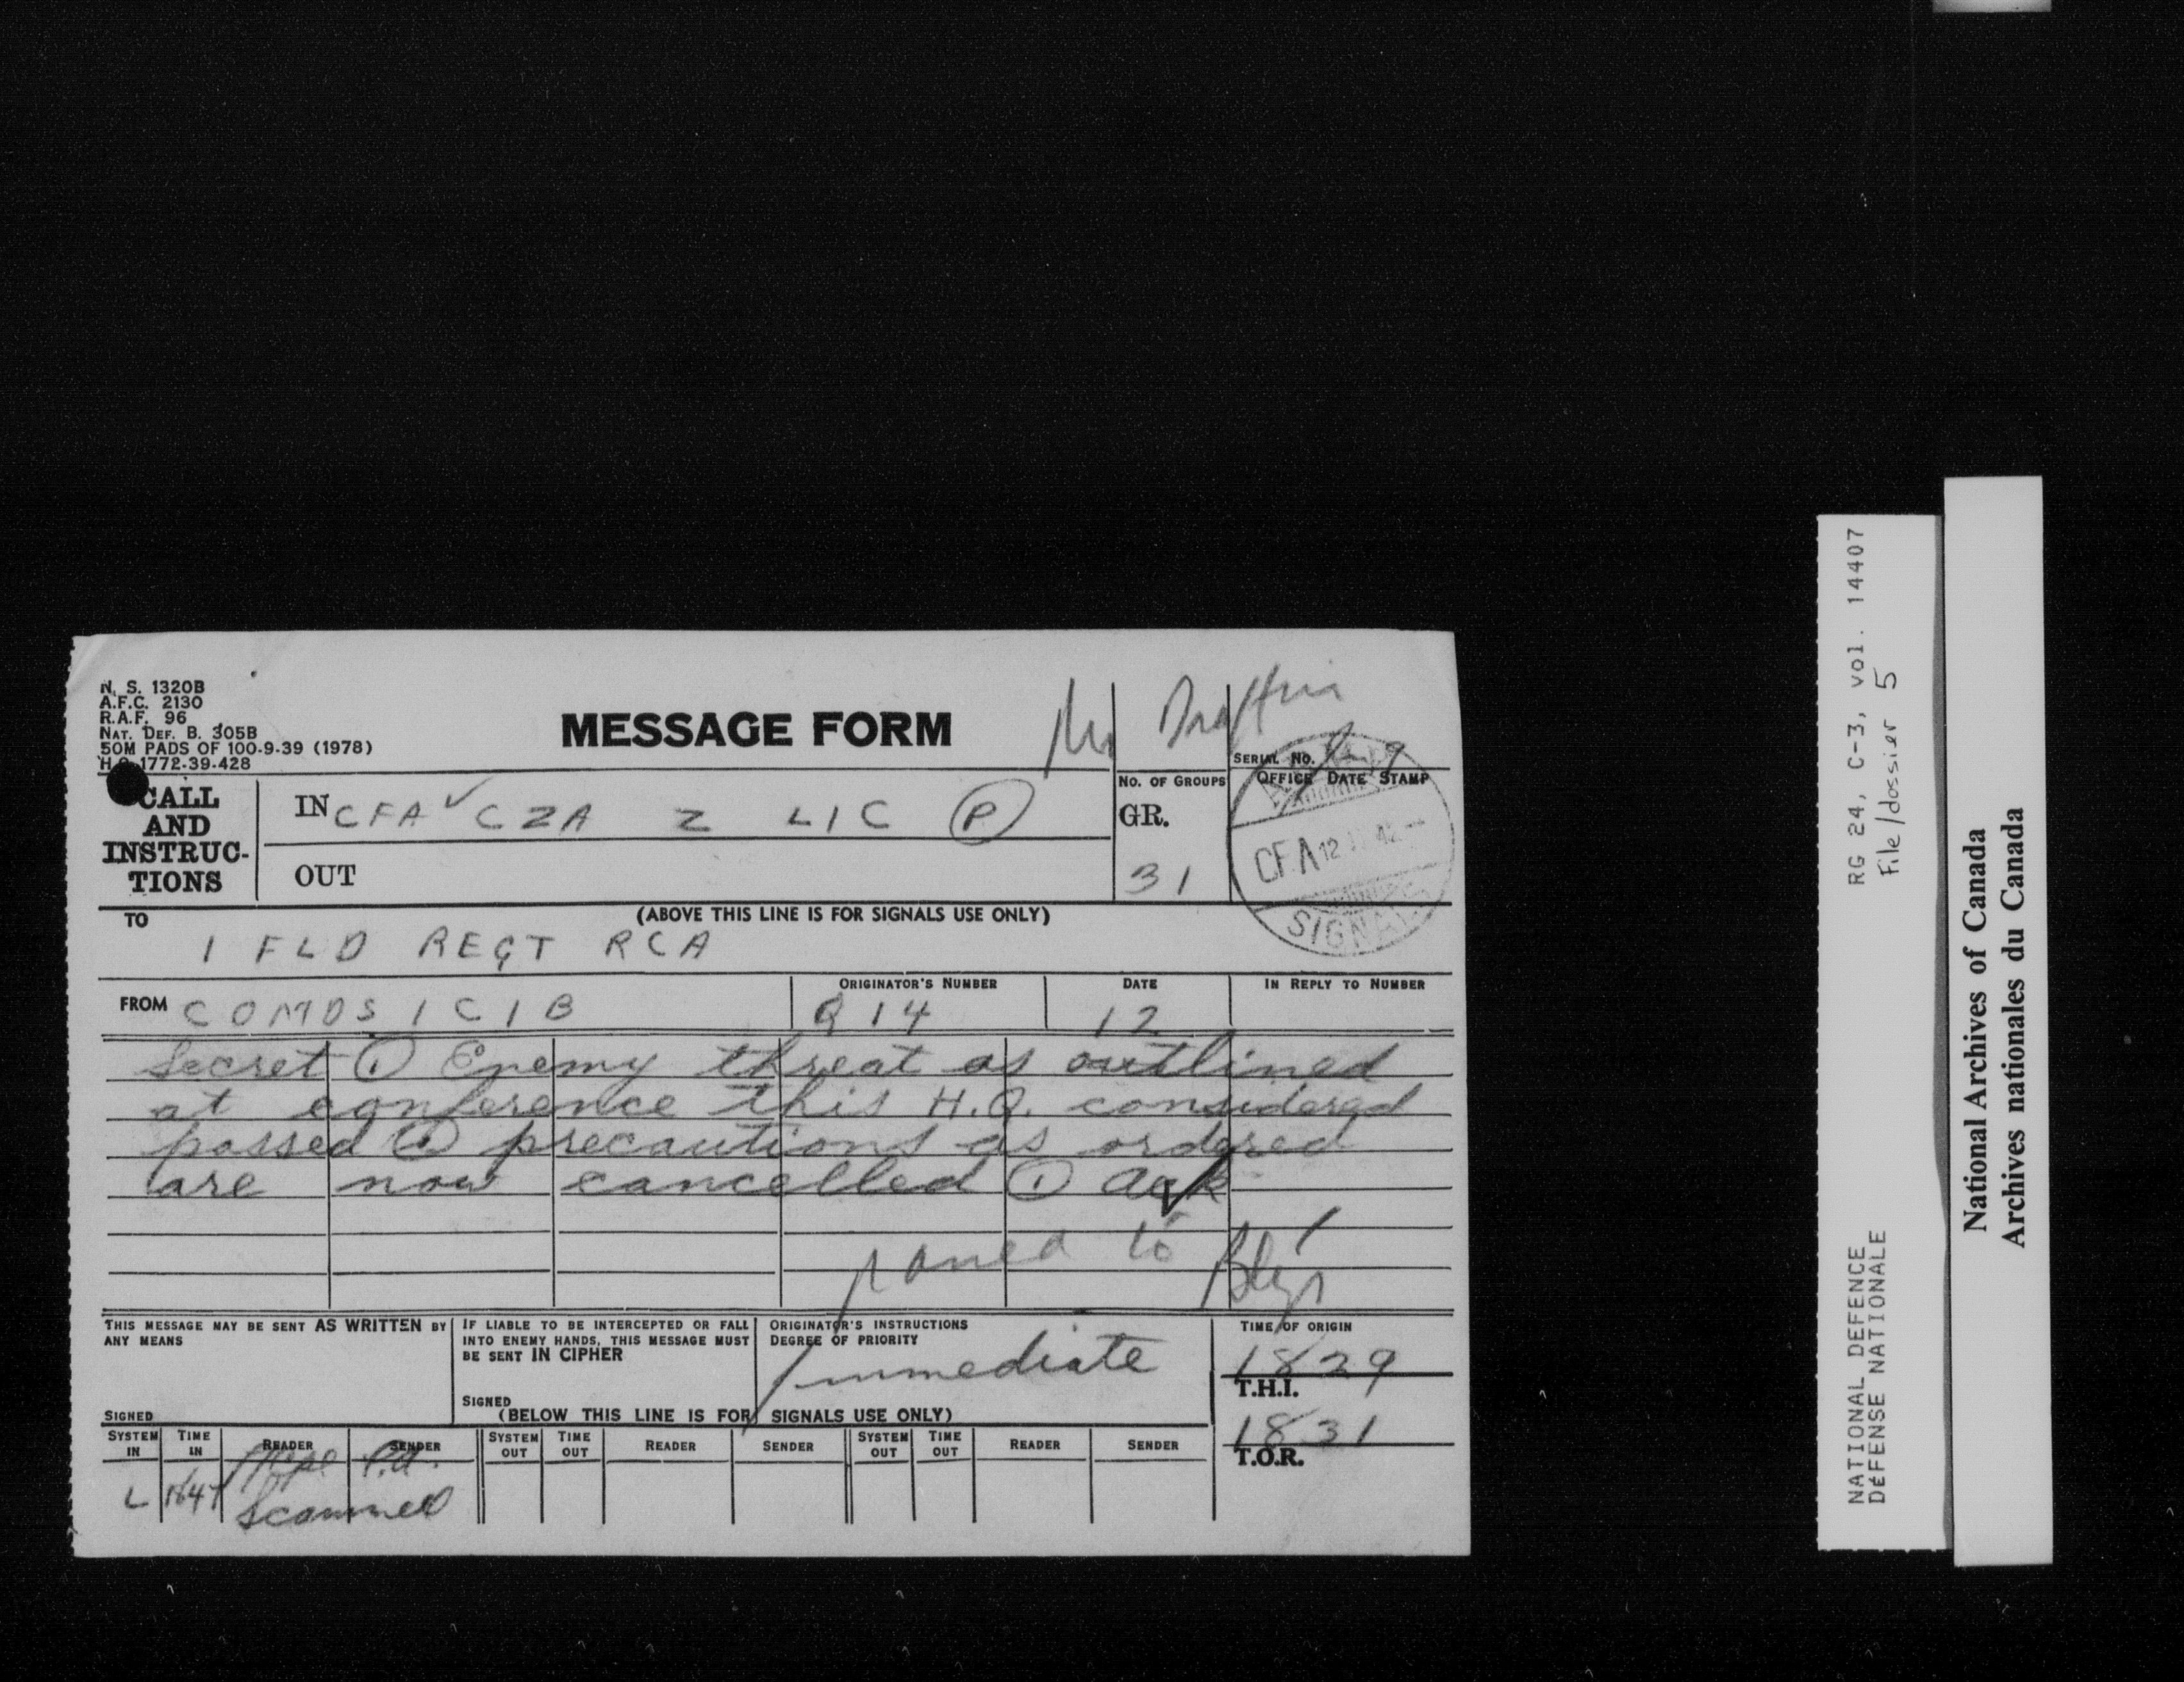 N. S. 1320B
A.F.C. 2130
R.A.F. 96
NAT. DEF. B. 305B
50M PADS OF 100-9-39 (1978)
H.Q. 1772-39-428
MESSAGE FORM
SERIAL NO.
CALL AND INSTRUC-TIONS
IN CFA ✓ CZA Z L1C Ⓟ
OUT
NO. OF GROUPS
GR.
31
OFFICE DATE STAMP
CFA 12
SIGNALS
TO
(ABOVE THIS LINE IS FOR SIGNALS USE ONLY)
1 FLD REGT RCA
FROM COMDS 1 C 1 B
ORIGINATOR'S NUMBER
Q 14
DATE
12
IN REPLY TO NUMBER
Secret ⊙ Enemy threat as outlined
at conference this H.Q. considered
passed ⊙ precautions as ordered
are now cancelled ⊙ Ack
passed to Btys
THIS MESSAGE MAY BE SENT AS WRITTEN BY
ANY MEANS
SIGNED
IF LIABLE TO BE INTERCEPTED OR FALL
INTO ENEMY HANDS, THIS MESSAGE MUST
BE SENT IN CIPHER
SIGNED
ORIGINATOR'S INSTRUCTIONS
DEGREE OF PRIORITY
Immediate
TIME OF ORIGIN
1829
T.H.I.
1831
T.O.R.
(BELOW THIS LINE IS FOR SIGNALS USE ONLY)
SYSTEM IN TIME IN READER SENDER SYSTEM OUT TIME OUT READER SENDER SYSTEM OUT TIME OUT READER SENDER
L 1847
RG 24, C-3, vol. 14407
File/dossier 5
NATIONAL DEFENCE
DéFENSE NATIONALE
National Archives of Canada
Archives nationales du Canada